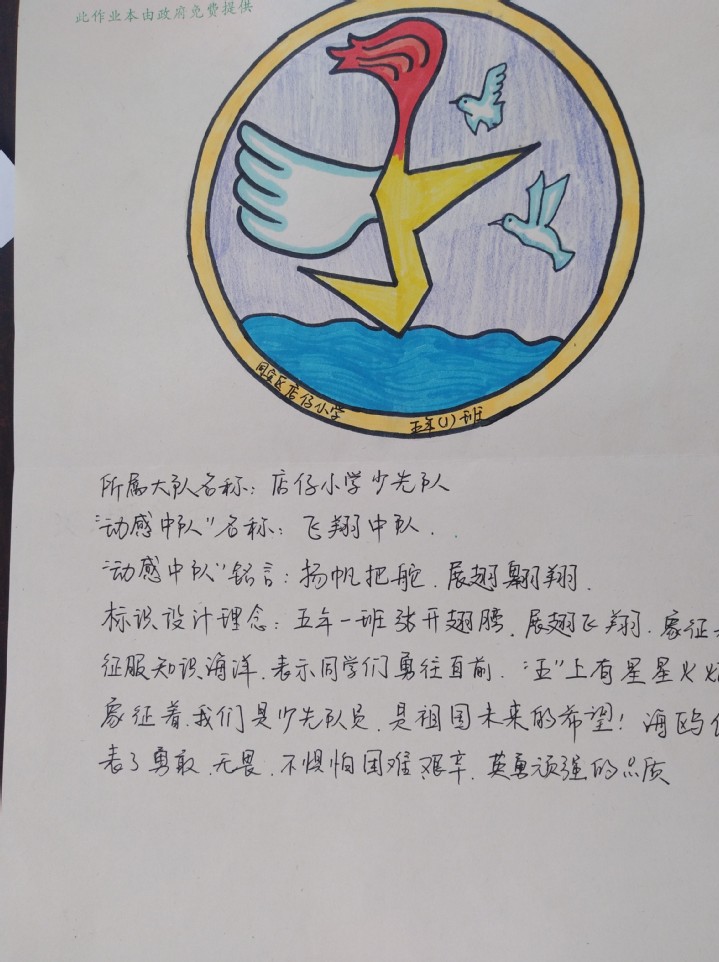 此作业本由政府免费提供
同安区店仔小学
五年(1)班
所属大队名称：店仔小学少先队
"动感中队"名称：飞翔中队．
"动感中队"铭言：扬帆把舵．展翅翱翔．
标识设计理念：五年一班张开翅膀．展翅飞翔．象征
征服知识海洋．表示同学们勇往直前．"五"上有星星火
象征着．我们是少先队员．是祖国未来的希望！海鸥
表了勇敢．无畏．不惧怕困难艰辛．英勇顽强的品质